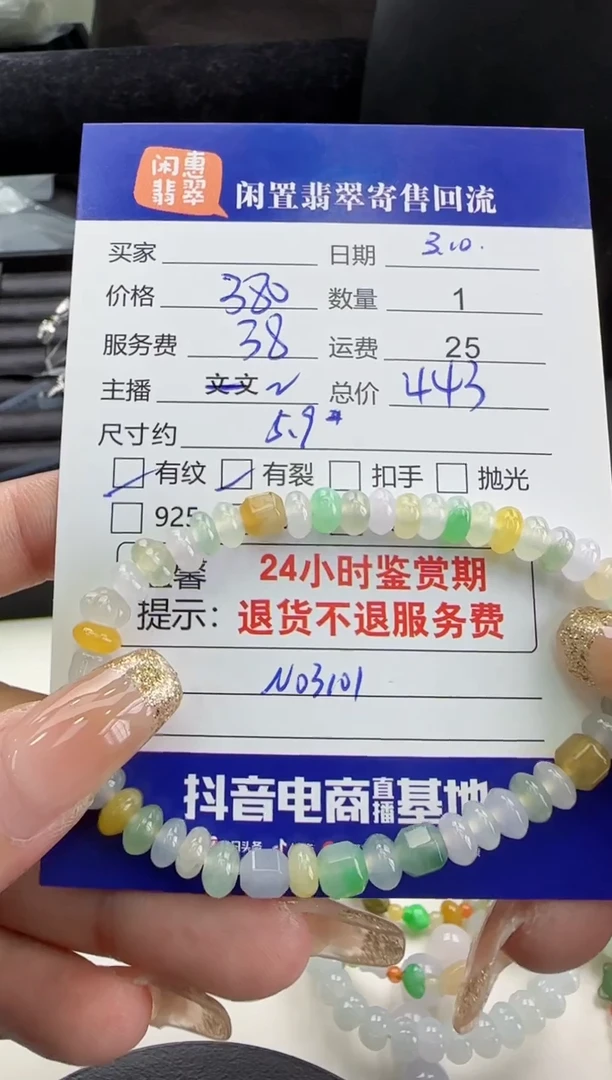 闲惠
翡翠
闲置翡翠寄售回流
买家 日期 3.10.
价格 380 数量 1
服务费 38 运费 25
主播 文文 总价 443
尺寸约 5.9
有纹 有裂 扣手 抛光
925
馨 24小时鉴赏期
提示： 退货不退服务费
N03101
抖音电商直播基地